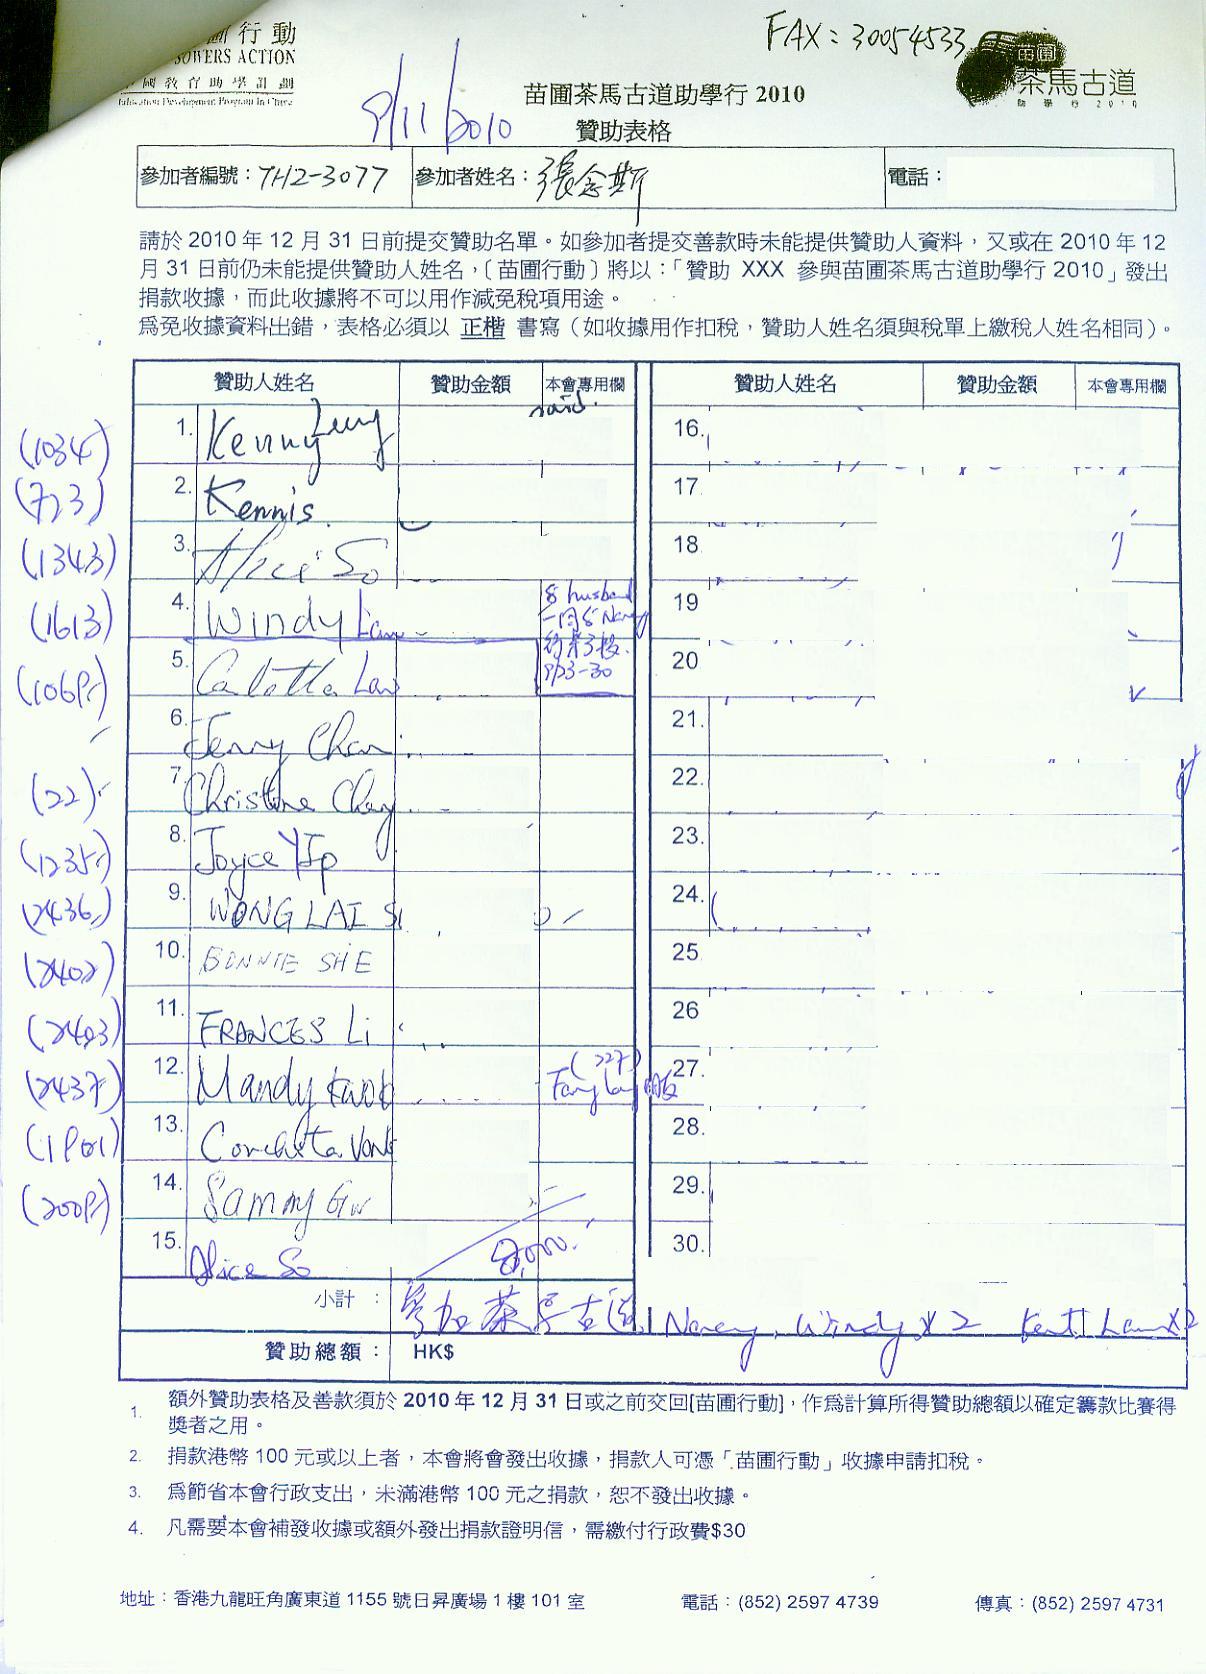 圃行動
SOWERS ACTION
國教育助學計劃
Education Development Program In China
FAX: 30054533
苗圃
茶馬古道
助學行2010
9/11/2010
苗圃茶馬古道助學行 2010
贊助表格
參加者編號：TH2-3077 參加者姓名：張念斯 電話：
請於 2010 年 12 月 31 日前提交贊助名單。如參加者提交善款時未能提供贊助人資料，又或在 2010 年 12
月 31 日前仍未能提供贊助人姓名，〔苗圃行動〕將以：「贊助 XXX 參與苗圃茶馬古道助學行 2010」發出
捐款收據，而此收據將不可以用作減免稅項用途。
為免收據資料出錯，表格必須以 正楷 書寫（如收據用作扣稅，贊助人姓名須與稅單上繳稅人姓名相同）。
贊助人姓名 贊助金額 本會專用欄 贊助人姓名 贊助金額 本會專用欄
(1034) 1. Kenny Leung 16.
(723) 2. Kennis 17.
(1343) 3. Alice So 18.
(1613) 4. Windy Lam husband 19
5. Carlotta Law 9/23-30 20
6. Jenny Chan 21.
(22) 7. Christine 22.
(1235) 8. Joyce Yip 23.
(2436) 9. WONG LAI 24.
(2402) 10. BONNIE SHE 25
(2403) 11. FRANCES Li 26
(2437) 12. Mandy Kwok (227) 27.
(1901) 13. Conchita 28.
14. Sammy 29.
15. Alice So 30.
小計：參加茶馬古道 Nancy, Windy x 2
贊助總額： HK$
1. 額外贊助表格及善款須於 2010 年 12 月 31 日或之前交回[苗圃行動]，作為計算所得贊助總額以確定籌款比賽得
獎者之用。
2. 捐款港幣 100 元或以上者，本會將會發出收據，捐款人可憑「苗圃行動」收據申請扣稅。
3. 為節省本會行政支出，未滿港幣 100 元之捐款，恕不發出收據。
4. 凡需要本會補發收據或額外發出捐款證明信，需繳付行政費$30
地址：香港九龍旺角廣東道 1155 號日昇廣場 1 樓 101 室 電話：(852) 2597 4739 傳真：(852) 2597 4731